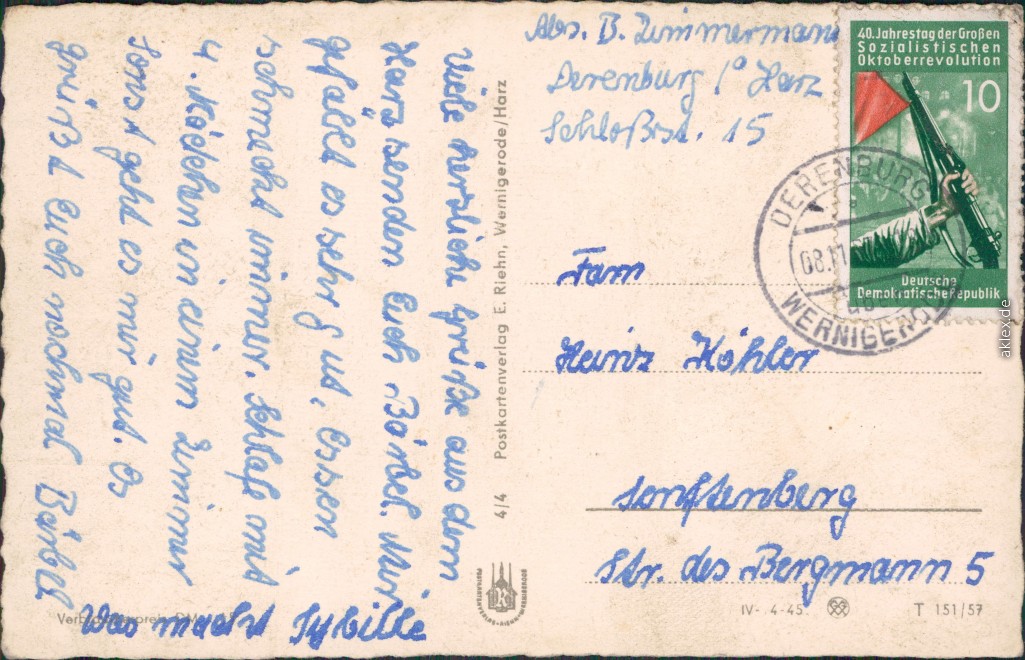 Abs. B. Zimmermann
Derenburg / Harz
Schloßstr. 15
40. Jahrestag der Großen
Sozialistischen
Oktoberrevolution
10
Deutsche
Demokratische Republik
DERENBURG
08.11.
WERNIGERO
Viele herzliche Grüße aus dem
Harz sendet Euch Bärbel. Mir
gefällt es sehr gut, Essen
schmeckt immer. Schlafe mit
4 Mädchen in einem Zimmer
Sonst geht es mir gut. Es
grüßt Euch nochmal Bärbel
Was macht Sybille
4/4 Postkartenverlag E. Riehn, Wernigerode/Harz
Fam
Heinz Köhler
Senftenberg
Str. des Bergmann 5
IV-.4-45.
T 151/57
aklex.de